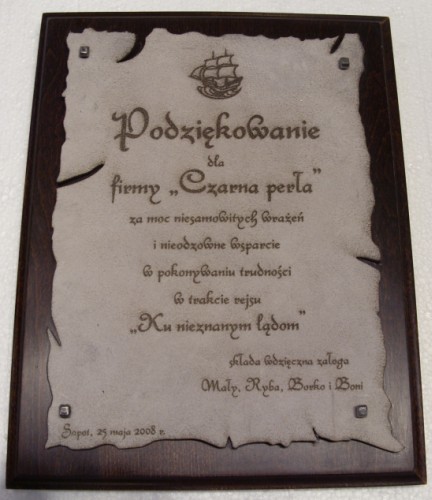 Podziękowanie
dla
firmy „Czarna perła”
za moc niesamowitych wrażeń
i nieodzowne wsparcie
w pokonywaniu trudności
w trakcie rejsu
„Ku nieznanym lądom”
składa wdzięczna załoga
Mały, Ryba, Borko i Boni
Sopot, 25 maja 2008 r.